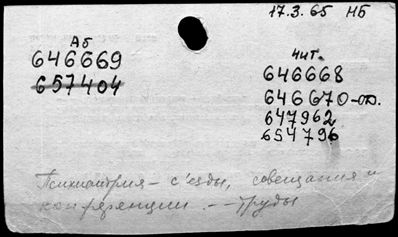 17.3.65 НБ
Аб
646669
657404
чит.
646668
646670-ор.
647962
654796
Психиатрия - с'езды, совещания и
конференции. -- труды